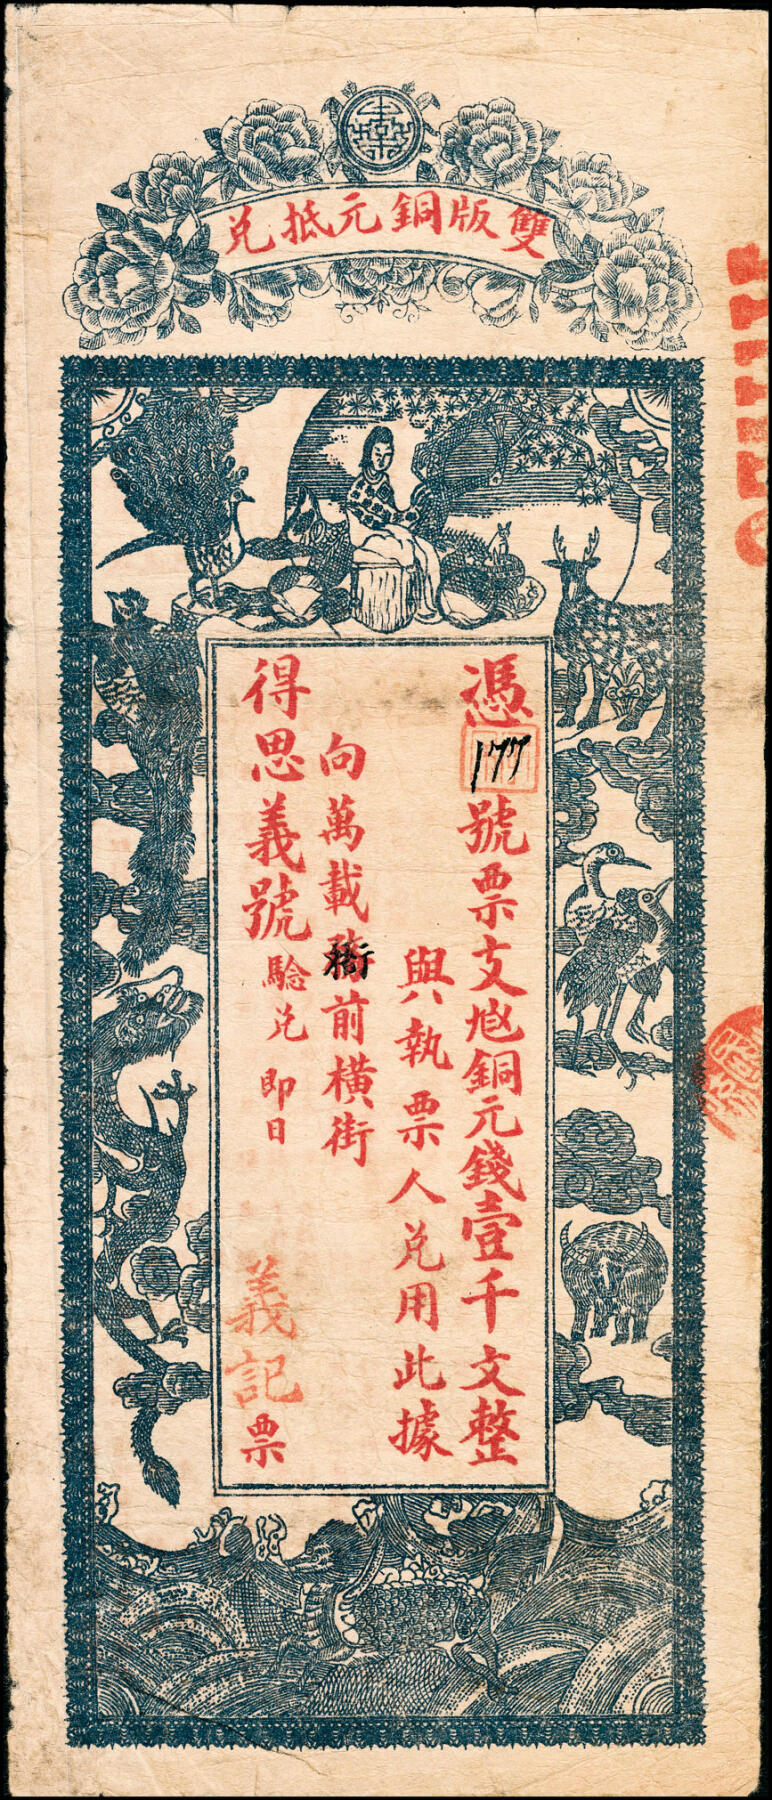 雙版銅元抵兌
憑177號票支尩銅元錢壹千文整
與執票人兌用此據
向萬載衙前橫街
得思義號驗兌即日
義記票